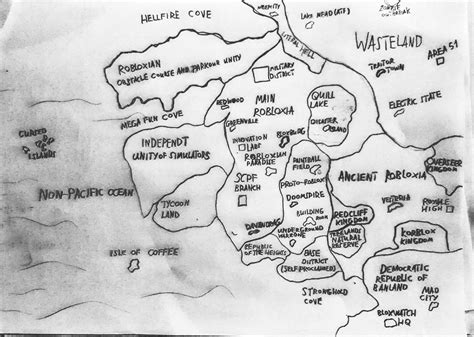 HELLFIRE COVE
WEBCITY
LAKE MEAD (ATF)
ZOMBIE
OUTBREAK
LITERAL HELL
WASTELAND
ROBLOXIAN
OBSTACLE COURSE AND PARKOUR UNITY
MILITARY
DISTRICT
TRAITOR
TOWN
AREA 51
REDWOOD
MAIN
ROBLOXIA
QUILL
LAKE
ELECTRIC STATE
MEGA FUN COVE
GREENVILLE
DISASTER
ISLAND
CURSED
ISLANDS
INDEPENDT
UNITY OF SIMULATORS
INNOVATION
LABS
BLOXBURG
ROBLOXIAN
PARADISE
PAINTBALL
FIELD
OVERSEER
KINGDOM
NON-PACIFIC OCEAN
SCPF
BRANCH
PROTO-ROBLOX
ANCIENT ROBLOXIA
TYCOON
LAND
DOOMSPIRE
VESTERIA
ROYALE
HIGH
BUILDING
REDCLIFF
KINGDOM
UNDERGROUND
WARZONE
KORBLOX
KINGDOM
REPUBLIC
OF THE HEIGHTS
NATURAL
RESERVE
ISLE OF COFFEE
BASE
DISTRICT
(SELF PROCLAIMED)
DEMOCRATIC
REPUBLIC OF
BANLAND
STRONGHOLD
COVE
MAD
CITY
BLOXWATCH
HQ